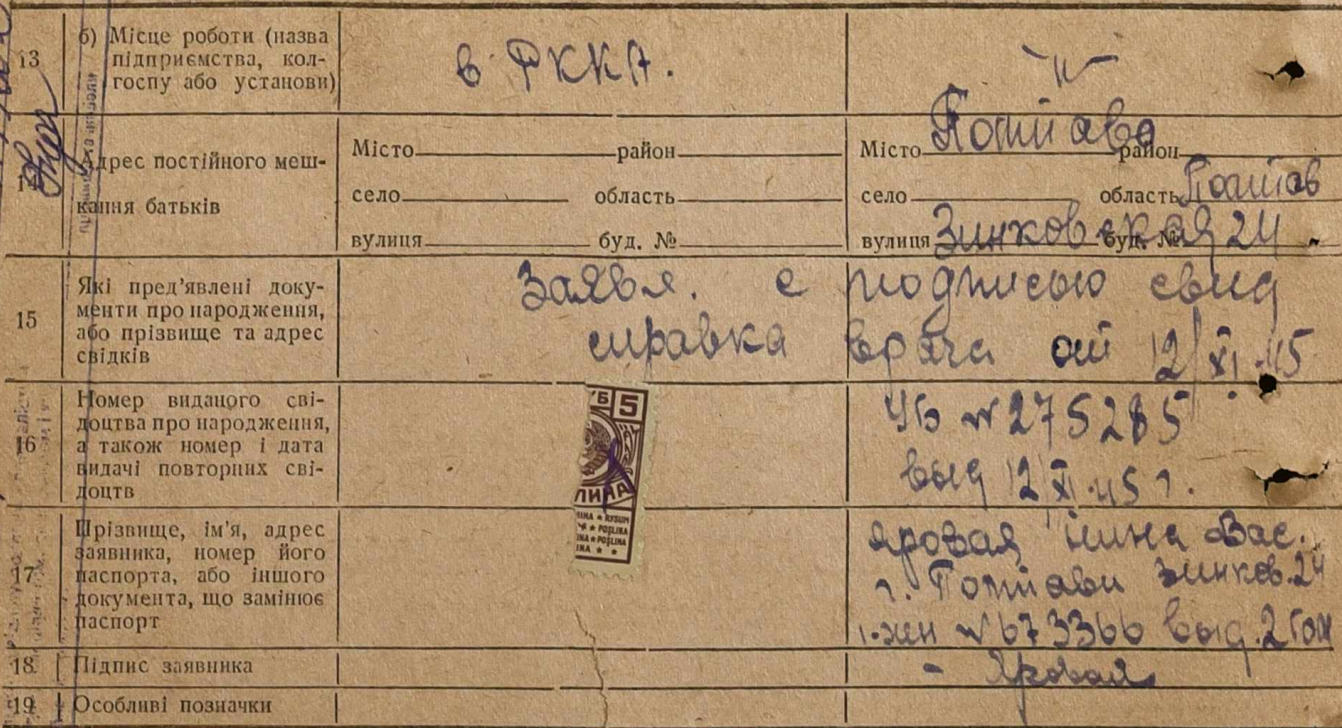 13 б) Місце роботи (назва
підприємства, кол-
госпу або установи)
в РККА.
—"—
14 Адрес постійного меш-
кання батьків
Місто район
село область
вулиця буд. №
Місто Полтава район
село область Полтав
вулиця Зинковская буд. № 24
15 Які пред'явлені доку-
менти про народження,
або прізвище та адрес
свідків
Заявл. с подписью свид
справка врача от 12/XI-45
16 Номер виданого сві-
доцтва про народження,
а також номер і дата
видачі повторних сві-
доцтв
УБ № 275285
выд 12/XI-45 г.
5
17 Прізвище, ім'я, адрес
заявника, номер його
паспорта, або іншого
документа, що замінює
паспорт
Яровая Нина Вас.
г. Полтави Зинков. 24
№ 673366 выд. 2
18 Підпис заявника
- Яровая
19 Особливі позначки